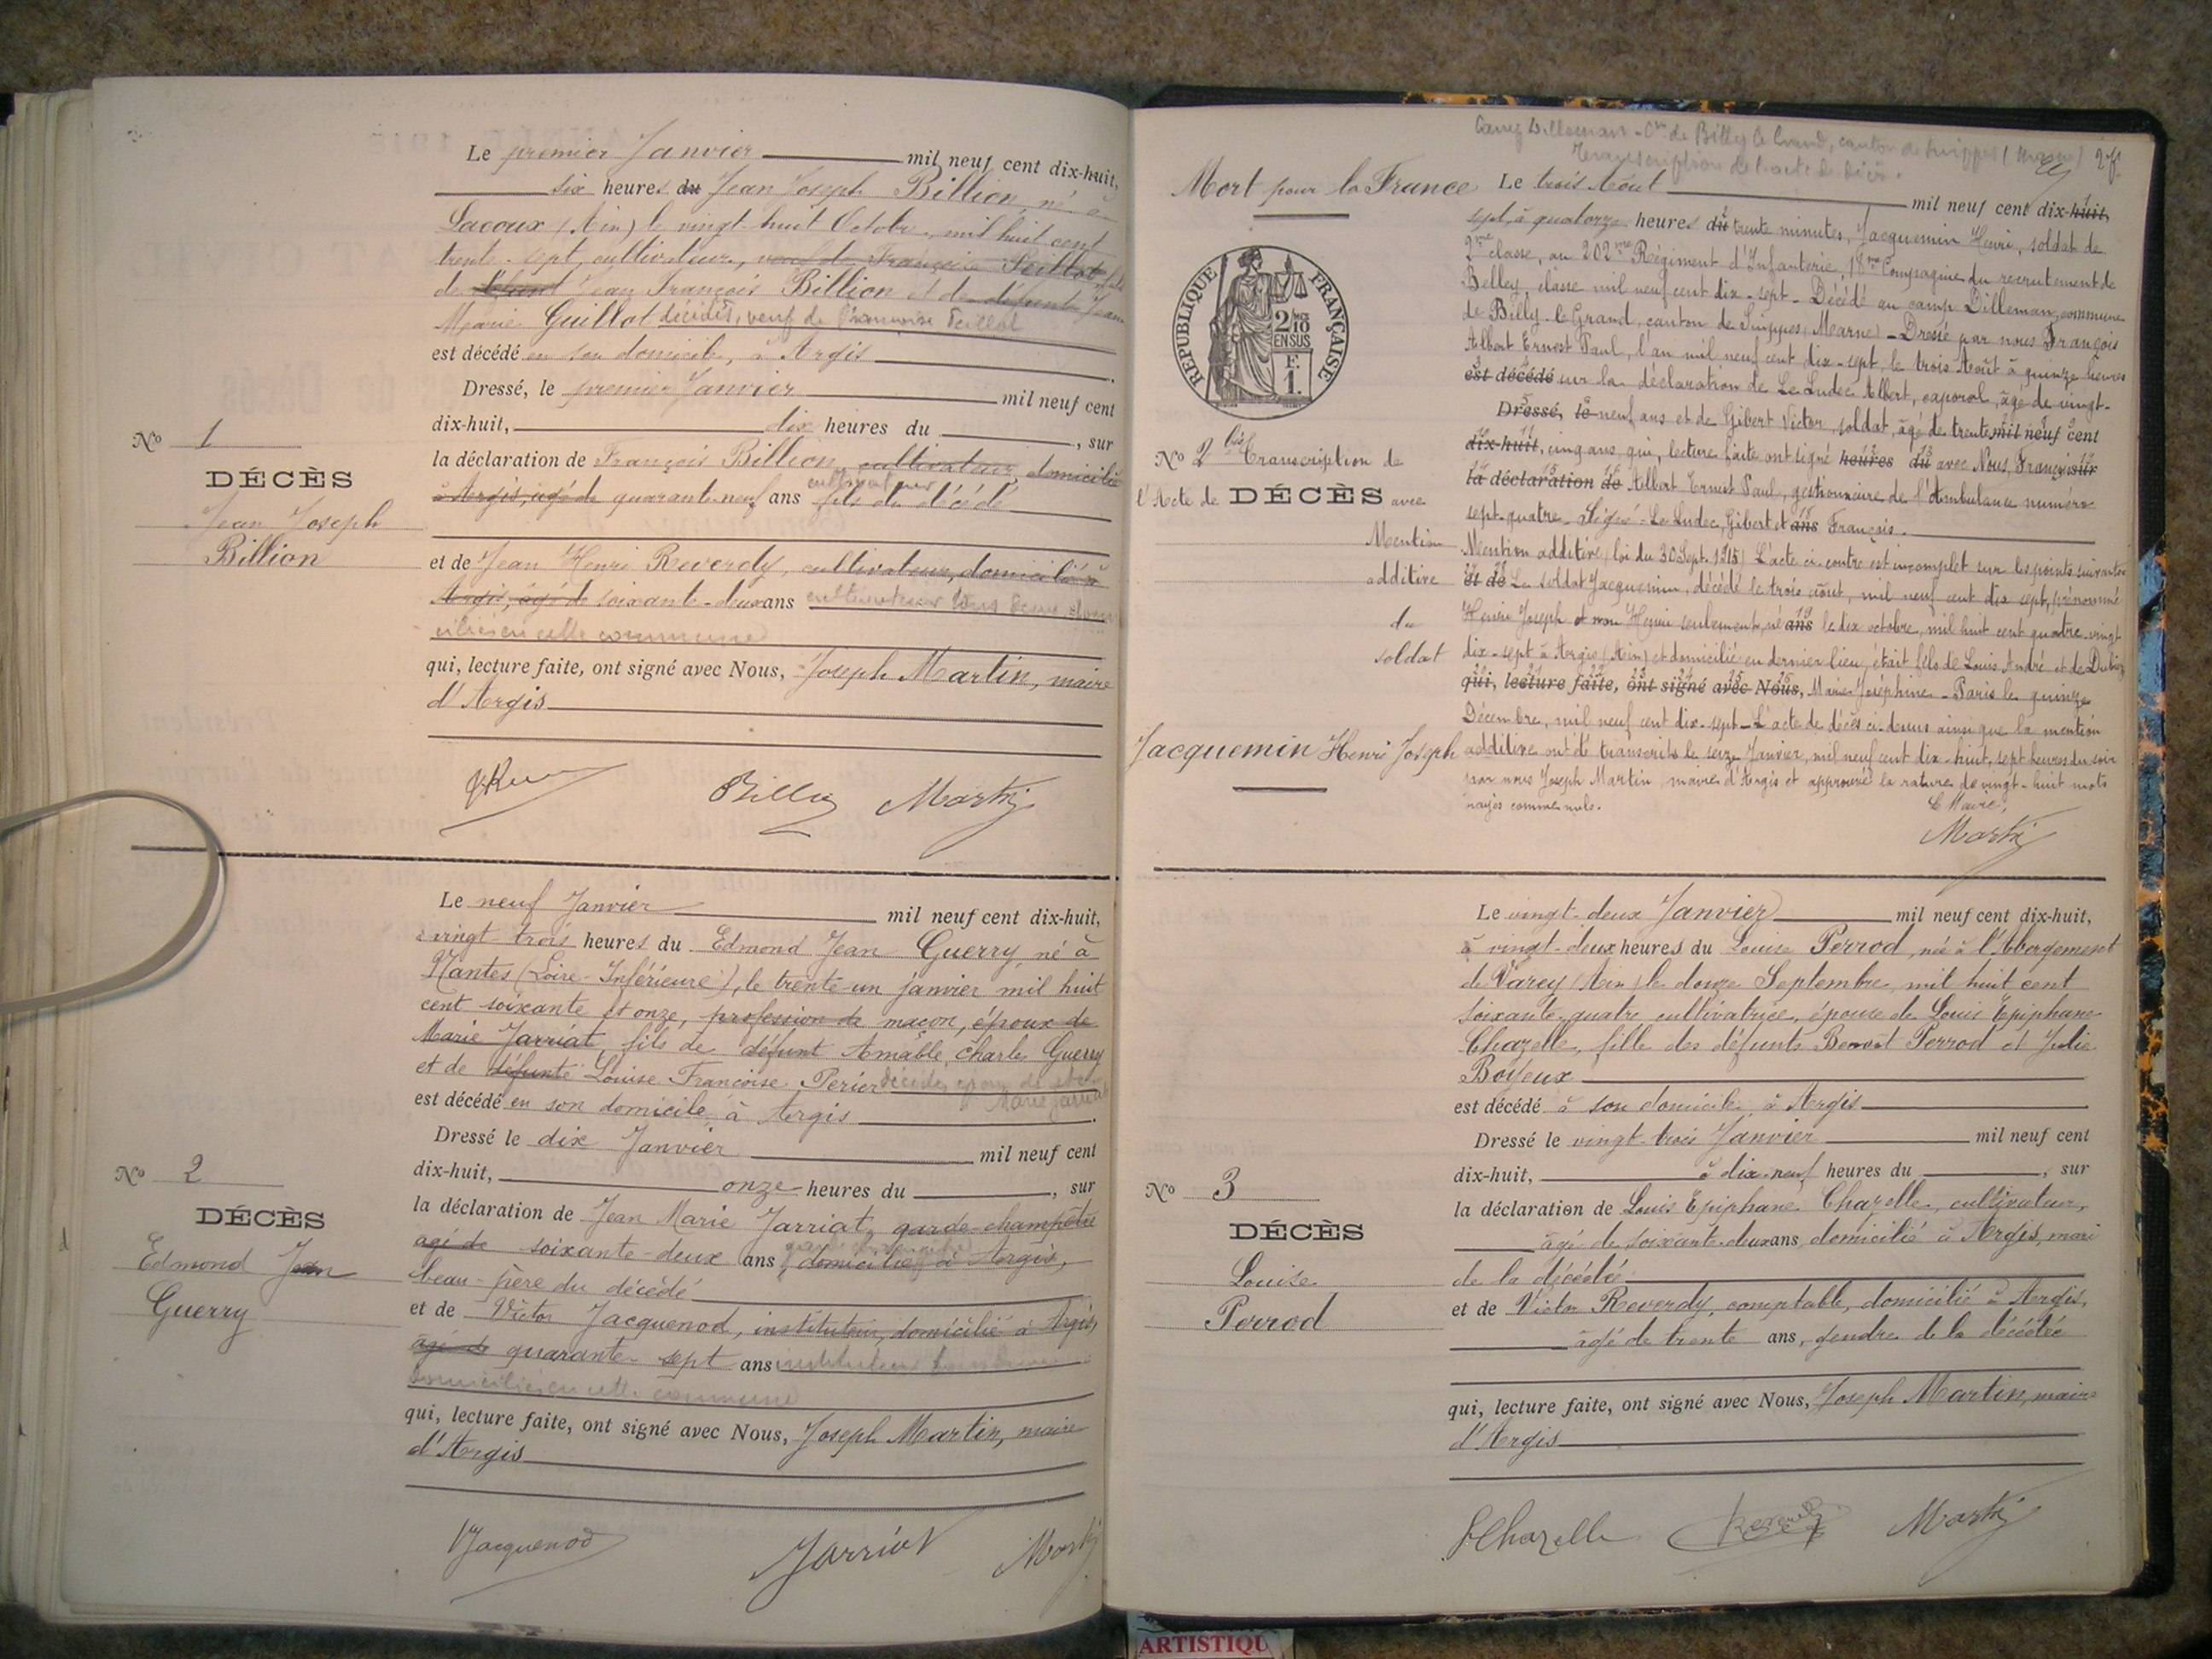 Le premier Janvier mil neuf cent dix-huit,
six heures du Jean Joseph Billion, né à
Lacoux (Ain) le vingt-huit Octobre, mil huit cent
trente-sept, cultivateur, veuf de Françoise Teillot fils
de défunt Jean François Billion et de défunte Jeanne
Marie Guillot décédés, veuf de Françoise Teillot
est décédé en son domicile, à Argis
Dressé, le premier Janvier mil neuf cent
dix-huit, dix heures du , sur
la déclaration de François Billion, cultivateur, domicilié
cultivateur
à Argis, agé de quarante-neuf ans fils du décédé
et de Jean Henri Reverdy, cultivateur, domicilié à
Argis, âgé de soixante-deux ans cultivateur tous deux domi
ciliés en cette commune
qui, lecture faite, ont signé avec Nous, Joseph Martin, maire
d'Argis
No 1
DÉCÈS
Jean Joseph
Billion
Martin
Le neuf Janvier mil neuf cent dix-huit,
à vingt-trois heures du Edmond Jean Guerry, né à
Nantes (Loire-Inférieure), le trente-un janvier mil huit
cent soixante et onze, profession de maçon, époux de
Marie Jarriat, fils de défunt Amable Charles Guerry
et de défunte Louise Françoise Perier décédés, époux de
Marie Jarriat
est décédé en son domicile, à Argis
Dressé le dix Janvier mil neuf cent
dix-huit, onze heures du , sur
la déclaration de Jean Marie Jarriat, garde-champêtre
agé de soixante-deux ans, domicilié à Argis,
beau-père du décédé
et de Victor Jacquenod, instituteur, domicilié à Argis,
âgé de quarante-sept ans instituteur tous deux
domiciliés en cette commune
qui, lecture faite, ont signé avec Nous, Joseph Martin, maire
d'Argis
No 2
DÉCÈS
Edmond Jean
Guerry
VJacquenod Jarriat Martin
Camp Dilleman - Cne de Billy le Grand, canton de Suippes (Marne)
Transcription de l'acte de décès.
Mort pour la France
Le trois Août mil neuf cent dix-huit,
sept, à quatorze heures du trente minutes, Jacquemin Henri, soldat de
2me classe, au 202me Régiment d'Infanterie, 18me Compagnie du recrutement de
Belley, classe mil neuf cent dix-sept - Décédé au camp Dilleman, commune
de Billy-le-Grand, canton de Suippes (Marne) - Dressé par nous François
Albert Ernest Paul, l'an mil neuf cent dix-sept, le trois Août à quinze heures
est décédé sur la déclaration de Le Ludec Albert, caporal, âgé de vingt-
Dressé, le neuf ans et de Gibert Victor, soldat, âgé de trente mil neuf cent
dix-huit, cinq ans qui, lecture faite ont signé heures du avec Nous, François sur
la déclaration de Albert Ernest Paul, gestionnaire de l'Ambulance numéro
sept-quatre - Signé - Le Ludec, Gibert et ans François.
Mention additive (loi du 30 Sept. 1915) L'acte ci-contre est incomplet sur les points suivants
et de Le soldat Jacquemin, décédé le trois août, mil neuf cent dix sept, prénommé
Henri Joseph et non Henri seulement, né ans le dix octobre, mil huit cent quatre-vingt
dix-sept à Argis (Ain) et domicilié en dernier lieu, était fils de Louis André et de
qui, lecture faite, ont signé avec Nous, Marie Joséphine - Paris le quinze
Décembre, mil neuf cent dix-sept - L'acte de décès ci-dessus ainsi que la mention
additive ont été transcrits le seize Janvier, mil neuf cent dix-huit, sept heures du soir
par nous Joseph Martin, maire d'Argis et approuvé la rature de vingt-huit mots
rayés comme nuls.
Le Maire,
Martin
RÉPUBLIQUE FRANÇAISE
2/10
EN SUS
F.
1.
No 2 bis Transcription de
l'Acte de DÉCÈS avec
Mention
additive
du
soldat
Jacquemin Henri Joseph
Le vingt-deux Janvier mil neuf cent dix-huit,
à vingt-deux heures du Louise Perrod, née à l'Abergement
de Varey (Ain) le douze Septembre, mil huit cent
soixante-quatre cultivatrice, épouse de Louis Epiphane
Chazelle, fille des défunts Benoit Perrod et Julie
Boyeux
est décédé à son domicile à Argis
Dressé le vingt-trois Janvier mil neuf cent
dix-huit, à dix-neuf heures du , sur
la déclaration de Louis Epiphane Chazelle, cultivateur,
âgé de soixante-deux ans, domicilié à Argis, mari
de la décédée
et de Victor Reverdy, comptable, domicilié à Argis,
âgé de trente ans, gendre de la décédée
qui, lecture faite, ont signé avec Nous, Joseph Martin, maire
d'Argis
No 3
DÉCÈS
Louise
Perrod
Chazelle Reverdy Martin
ARTISTIQU